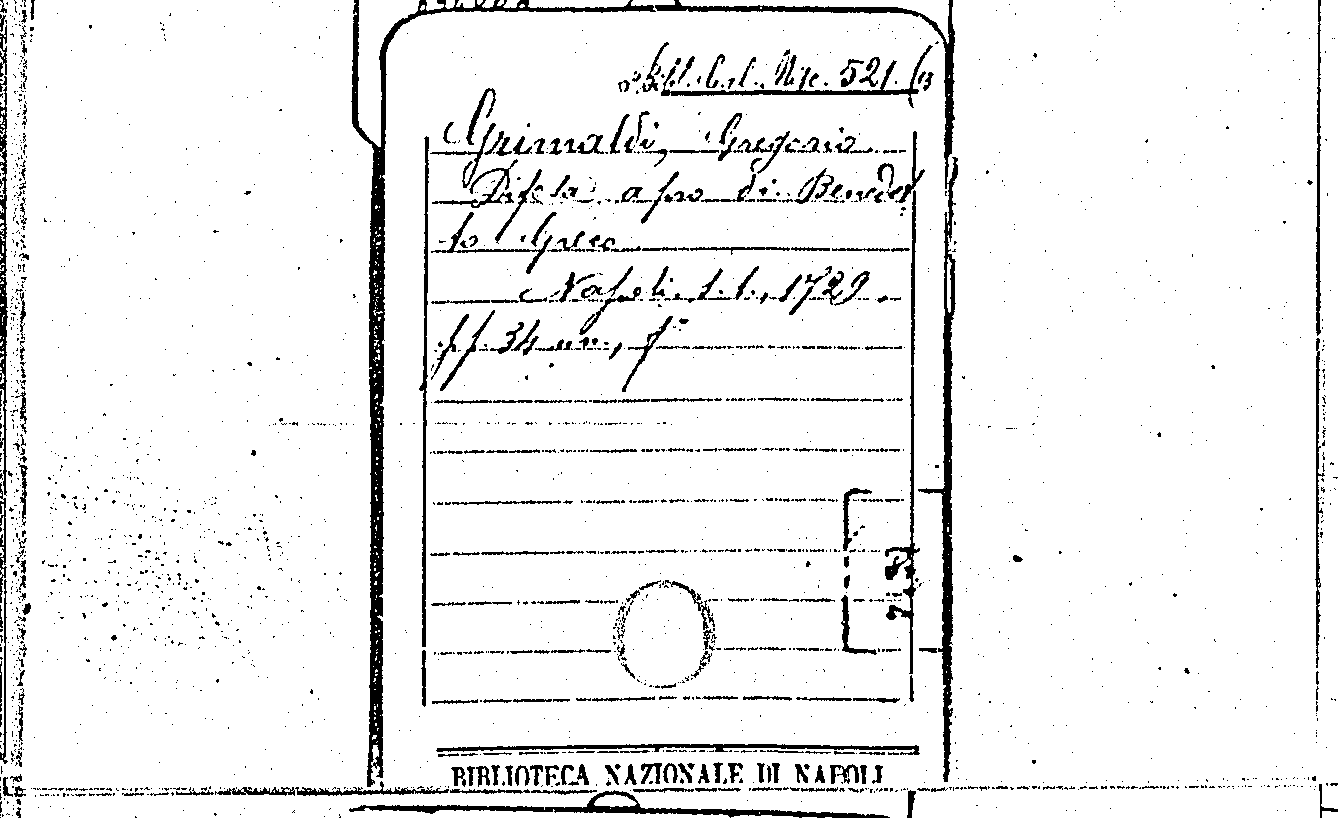 Bibl. Cal. Misc. 521. (13
Grimaldi, Gregorio
Difesa a pro di Benedet
to Greco
Napoli s.t., 1729.
pp. 34 nn., f°
BIBLIOTECA NAZIONALE DI NAPOLI